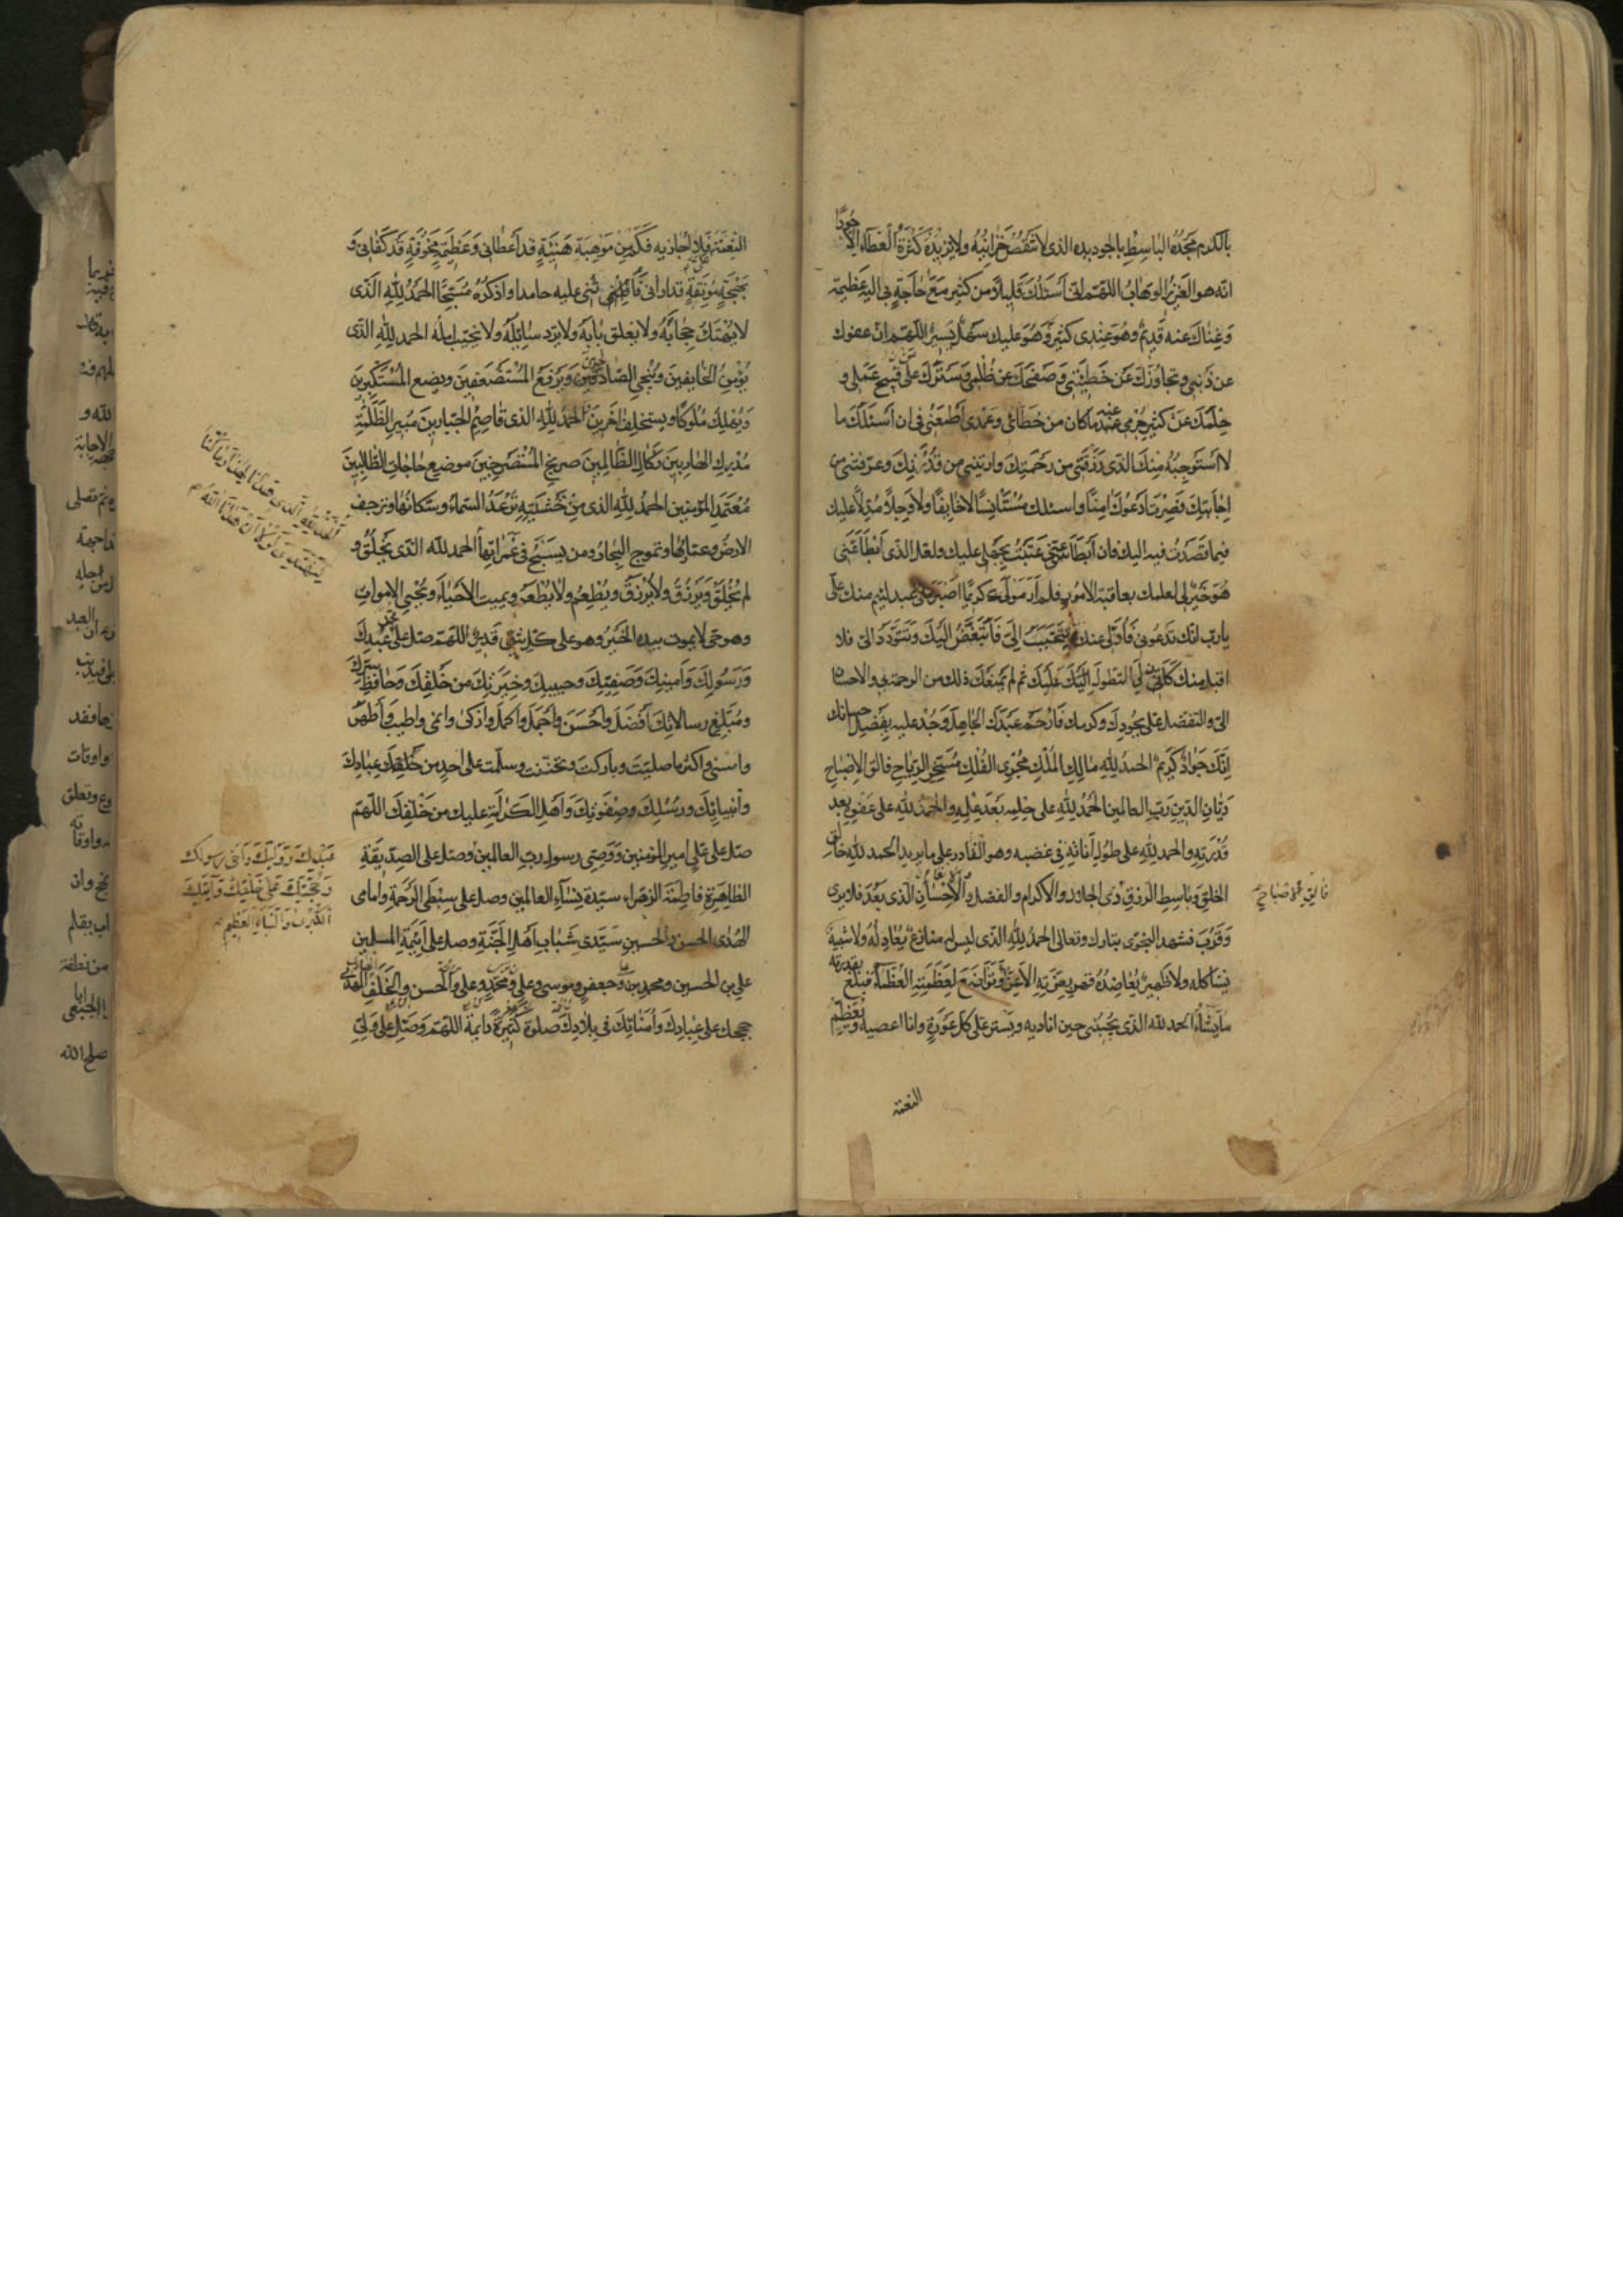 بالكرم مجده الباسط بالجود يده الذى لا تنقص خزائنه ولا يزيده كثرة العطاء الا جودا
انه هو العزيز الوهاب اللهم انى اسئلك قليلا من كثير مع حاجة بى اليه عظيمة
وغناك عنه قديم وهو عندى كثير وهو عليك سهل يسير اللهم ان عفوك
عن ذنبى وتجاوزك عن خطيئتى وصفحك عن ظلمى وسترك على قبيح عملى و
حلمك عن كثير جرمى عند ما كان من خطائى وعمدى اطمعنى فى ان اسئلك ما
لا استوجبه منك الذى رزقتنى من رحمتك واريتنى من قدرتك وعرفتنى من
اجابتك فصرت ادعوك امنا واسئلك مستانسا لا خايفا ولا وجلا مدلا عليك
فيما قصدت فيه اليك فان ابطا عنى عتبت بجهلى عليك ولعل الذى ابطا عنى
هو خير لى لعلمك بعاقبة الامور فلم ار مولى كريما اصبر على عبد لئيم منك على
يا رب انك تدعونى فاولى عنك وتتحبب الى فاتبغض اليك وتتودد الى فلا
اقبل منك كان لى التطول عليك ثم لم يمنعك ذلك من الرحمة بى والاحسان
الى والتفضل على بجودك وكرمك فارحم عبدك الجاهل وجد عليه بفضل احسانك
انك جواد كريم الحمد لله مالك الملك مجرى الفلك مسخر الرياح فالق الاصباح
ديان الدين رب العالمين الحمد لله على حلمه بعد علمه والحمد لله على عفوه بعد
قدرته والحمد لله على طول اناته فى غضبه وهو القادر على ما يريد الحمد لله خالق
الخلق وباسط الرزق ذى الجلال والاكرام والفضل والاحسان الذى بعد فلا يرى
وقرب فشهد النجوى تبارك وتعالى الحمد لله الذى ليس له منازع يعادله ولا شبيه
يشاكله ولا ظهير يعاضده قهر بعزته الاعزاء وتواضع لعظمته العظماء فبلغ بقدرته
ما يشاء الحمد لله الذى يجيبنى حين اناديه ويستر على كل عورة وانا اعصيه ويعظم
النعمة
النعمة فلا اجازيه فكم من موهبة هنيئة قد اعطانى وعظيمة مخوفة قد كفانى و
بهجة مونقة قد ارانى فاثنى عليه حامدا واذكره مسبحا الحمد لله الذى
لا يهتك حجابه ولا يغلق بابه ولا يرد سائله ولا يخيب امله الحمد لله الذى
يؤمن الخايفين وينجى الصادقين ويرفع المستضعفين ويضع المستكبرين
ويهلك ملوكا ويستخلف اخرين الحمد لله الذى قاصم الجبارين مبير الظلمة
مدرك الهاربين نكال الظالمين صريخ المستصرخين موضع حاجات الطالبين
معتمد المؤمنين الحمد لله الذى من خشيته ترعد السماء وسكانها وترجف
الارض وعمارها وتموج البحار ومن يسبح فى غمراتها الحمد لله الذى يخلق و
لم يخلق ويرزق ولا يرزق ويطعم ولا يطعم ويميت الاحياء ويحيى الاموات
وهو حى لا يموت بيده الخير وهو على كل شئ قدير اللهم صل على محمد عبدك
ورسولك وامينك وصفيك وحبيبك وخيرتك من خلقك وحافظ سرك
ومبلغ رسالاتك افضل واحسن واجمل واكمل وازكى وانمى واطيب واطهر
واسنى واكثر ما صليت وباركت وتحننت وسلمت على احد من عبادك
وانبيائك ورسلك وصفوتك واهل الكرامة عليك من خلقك اللهم
صل على على امير المؤمنين ووصى رسول رب العالمين وصل على الصديقة
الطاهرة فاطمة الزهراء سيدة نساء العالمين وصل على سبطى الرحمة وامامى
الهدى الحسن والحسين سيدى شباب اهل الجنة وصل على ائمة المسلمين
على بن الحسين ومحمد بن على وجعفر وموسى وعلى ومحمد وعلى والحسن والخلف المهدى
حججك على عبادك وامنائك فى بلادك صلوة كثيرة دائمة اللهم وصل على ولى
الحمد لله الذى هدانا لهذا وما كنا
لنهتدى لولا ان هدانا الله
عبدك ووليك واخى رسولك
وحجتك على خلقك وايتك
الكبرى والنباء العظيم